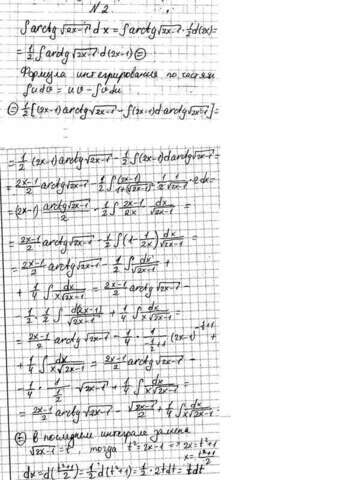 N 2
∫ arctg √(2x-1) dx = ∫ arctg √(2x-1) · 1/2 d(2x) =
= 1/2 ∫ arctg √(2x-1) d(2x-1) ⊜
Формула интегрирования по частям
∫u dv = uv - ∫v du
⊜ 1/2 [(2x-1) arctg √(2x-1) - ∫(2x-1) d arctg √(2x-1)] =
= 1/2 (2x-1) arctg √(2x-1) - 1/2 ∫(2x-1) d arctg √(2x-1) =
= (2x-1)/2 arctg √(2x-1) - 1/2 ∫ (2x-1)/(1+(√(2x-1))²) · 1/2 · 1/√(2x-1) · 2dx =
= (2x-1) arctg √(2x-1)/2 - 1/2 ∫ (2x-1)/2x · dx/√(2x-1) =
= (2x-1)/2 arctg √(2x-1) - 1/2 ∫ (1 - 1/2x) dx/√(2x-1) =
= (2x-1)/2 arctg √(2x-1) - 1/2 ∫ dx/√(2x-1) +
+ 1/4 ∫ dx/(x√(2x-1)) = (2x-1)/2 arctg √(2x-1) -
- 1/2 · 1/2 ∫ d(2x-1)/√(2x-1) + 1/4 ∫ dx/(x√(2x-1)) =
= (2x-1)/2 arctg √(2x-1) - 1/4 · 1/(-1/2+1) (2x-1)^(-1/2+1) +
+ 1/4 ∫ dx/(x√(2x-1)) = (2x-1)/2 arctg √(2x-1) -
- 1/4 · 1/(1/2) · √(2x-1) + 1/4 ∫ dx/(x√(2x-1)) =
= (2x-1)/2 arctg √(2x-1) - √(2x-1)/2 + 1/4 ∫ dx/(x√(2x-1))
⊜ В последнем интеграле замена
√(2x-1) = t, тогда t² = 2x-1 => 2x = t²+1
x = (t²+1)/2
dx = d((t²+1)/2) = 1/2 d(t²+1) = 1/2 · 2t dt = t dt